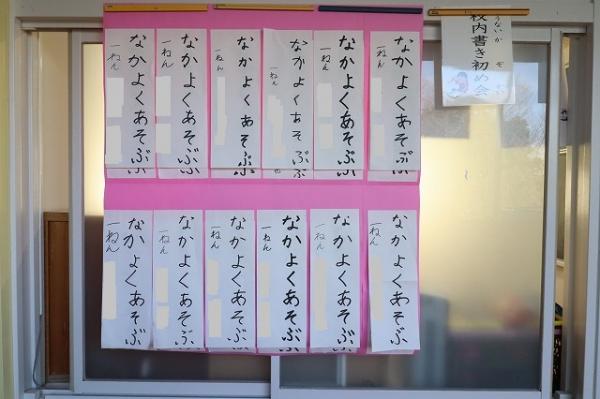 うないか ぞ
校内書き初め会
なかよくあそぶ
一ねん
なかよくあそぶ
一ねん
なかよくあそぶ
一ねん
なかよくあそぶ
一ねん
なかよくあそぶ
一ねん
なかよくあそぶ
一ねん
なかよくあそぶ
一ねん
なかよくあそぶ
一ねん
なかよくあそぶ
一ねん
なかよくあそぶ
一ねん
なかよくあそぶ
一ねん
なかよくあそぶ
一ねん